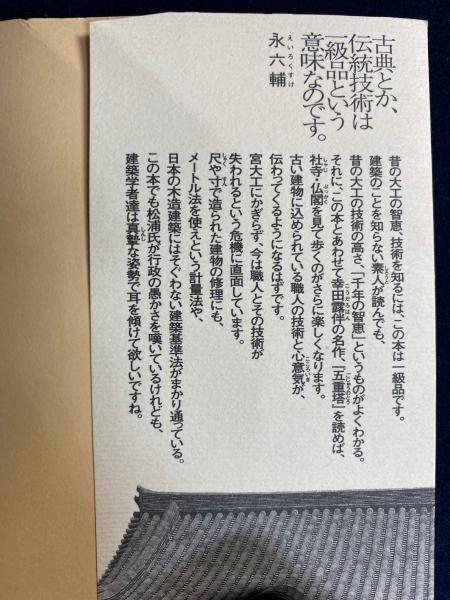 古典とか、
伝統技術は
一級品という
意味なのです。
永六輔
えいろくすけ
昔の大工の智恵、技術を知るには、この本は一級品です。
建築のことを知らない素人が読んでも、
しろうと
昔の大工の技術の高さ、「千年の智恵」というものがよくわかる。
それに、この本とあわせて幸田露伴の名作、『五重塔』を読めば、
こうだろはん
ごじゅうのとう
社寺・仏閣を見て歩くのがさらに楽しくなります。
しゃじ
ぶっかく
古い建物に込められている職人の技術と心意気が、
こころいき
伝わってくるようになるはずです。
宮大工にかぎらず、今は職人とその技術が
失われるという危機に直面しています。
尺や寸で造られた建物の修理にも、
しゃく
すん
メートル法を使えという計量法や、
日本の木造建築にはそぐわない建築基準法がまかり通っている。
この本でも松浦氏が行政の愚かさを嘆いているけれども、
建築学者達は真摯な姿勢で耳を傾けて欲しいですね。
しんし